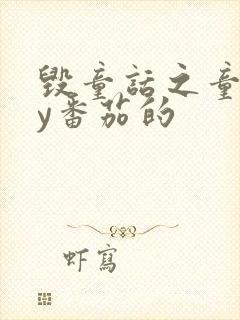 毁童话之童
y番茄的
虾写